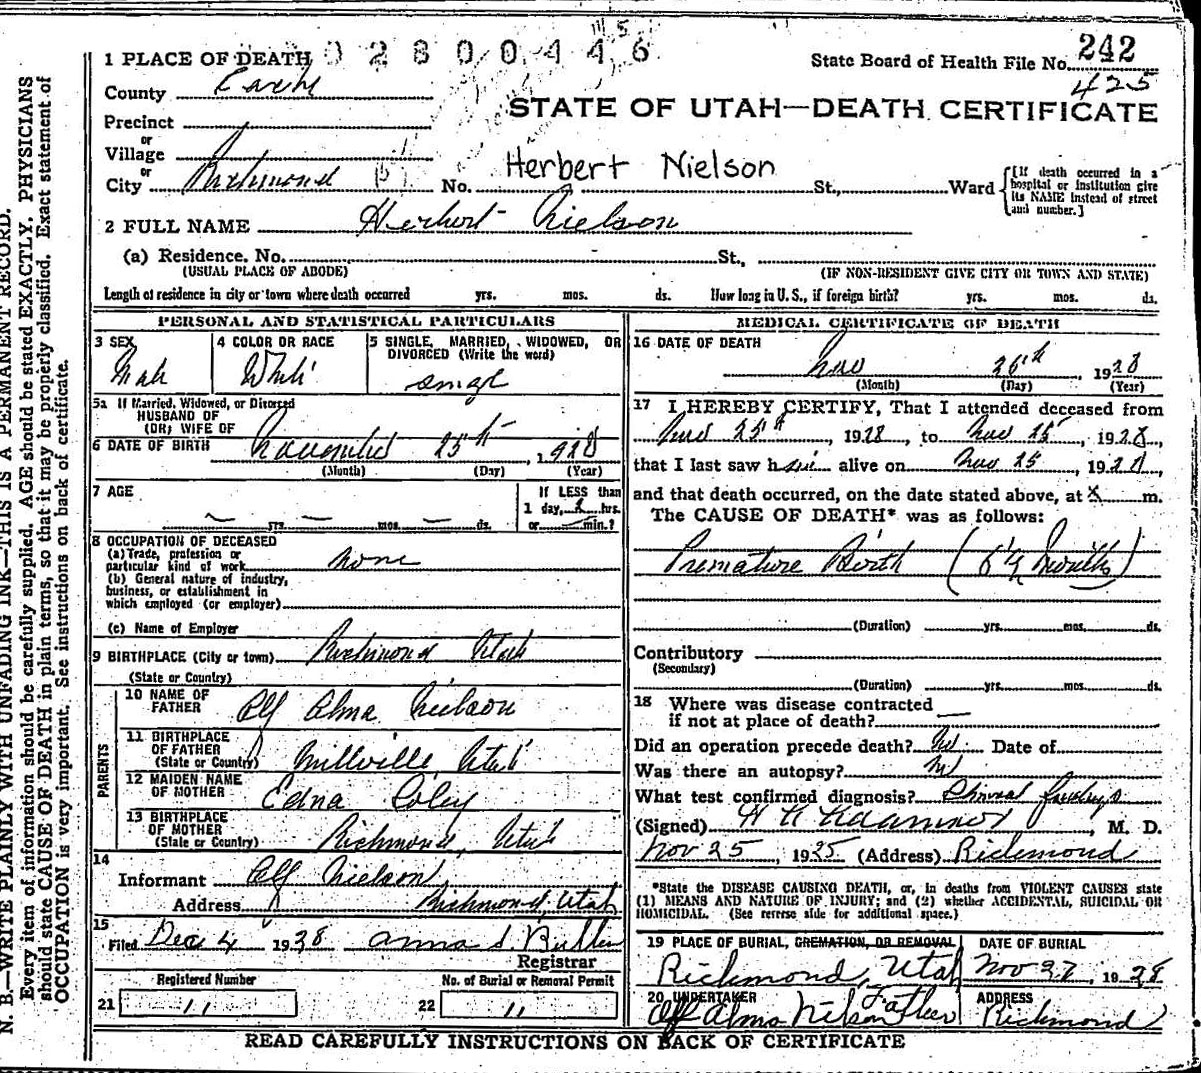 N. B.—WRITE PLAINLY WITH UNFADING INK—THIS IS A PERMANENT RECORD.
Every item of information should be carefully supplied. AGE should be stated EXACTLY. PHYSICIANS
should state CAUSE OF DEATH in plain terms, so that it may be properly classified. Exact statement of
OCCUPATION is very important. See instructions on back of certificate.
1 PLACE OF DEATH 0 2 8 0 0 4 4 6
State Board of Health File No. 242
425
County Cache
STATE OF UTAH—DEATH CERTIFICATE
Precinct
or
Village
or
City Richmond No. Herbert Nielson St., Ward
[If death occurred in a
hospital or institution give
its NAME instead of street
and number.]
2 FULL NAME Herbert Nielson
(a) Residence. No. St.,
(USUAL PLACE OF ABODE) (IF NON-RESIDENT GIVE CITY OR TOWN AND STATE)
Length of residence in city or town where death occurred yrs. mos. ds. How long in U. S., if foreign birth? yrs. mos. ds.
PERSONAL AND STATISTICAL PARTICULARS
3 SEX Male
4 COLOR OR RACE White
5 SINGLE, MARRIED, WIDOWED, OR
DIVORCED (Write the word)
single
5a If Married, Widowed, or Divorced
HUSBAND OF
(OR) WIFE OF
6 DATE OF BIRTH November 25th, 1928
(Month) (Day) (Year)
7 AGE
yrs. mos. ds.
If LESS than
1 day, hrs.
or min.?
8 OCCUPATION OF DECEASED
(a) Trade, profession or
particular kind of work none
(b) General nature of industry,
business, or establishment in
which employed (or employer)
(c) Name of Employer
9 BIRTHPLACE (City or town) Richmond Utah
(State or Country)
PARENTS
10 NAME OF
FATHER Alf Alma Nielson
11 BIRTHPLACE
OF FATHER
(State or Country) Millville Utah
12 MAIDEN NAME
OF MOTHER Edna Coley
13 BIRTHPLACE
OF MOTHER
(State or Country) Richmond, Utah
14
Informant Alf Nielson
Address Richmond, Utah
15
Filed Dec 4 1928 Anna S.
Registrar
Registered Number
21 11
No. of Burial or Removal Permit
22 11
MEDICAL CERTIFICATE OF DEATH
16 DATE OF DEATH
Nov 26th, 1928
(Month) (Day) (Year)
17 I HEREBY CERTIFY, That I attended deceased from
Nov 25th, 1928, to Nov 25, 1928,
that I last saw him alive on Nov 25, 1928,
and that death occurred, on the date stated above, at X m.
The CAUSE OF DEATH* was as follows:
Premature Birth (6½ months)
(Duration) yrs. mos. ds.
Contributory
(Secondary)
(Duration) yrs. mos. ds.
18 Where was disease contracted
if not at place of death?
Did an operation precede death? No Date of
Was there an autopsy? No
What test confirmed diagnosis?
(Signed) , M. D.
Nov 25, 1925 (Address) Richmond
*State the DISEASE CAUSING DEATH, or, in deaths from VIOLENT CAUSES state
(1) MEANS AND NATURE OF INJURY; and (2) whether ACCIDENTAL, SUICIDAL OR
HOMICIDAL. (See reverse side for additional space.)
19 PLACE OF BURIAL, CREMATION, OR REMOVAL
Richmond, Utah
DATE OF BURIAL
Nov 27, 1928
20 UNDERTAKER
Alf Alma Nielson Father
ADDRESS
Richmond
READ CAREFULLY INSTRUCTIONS ON BACK OF CERTIFICATE